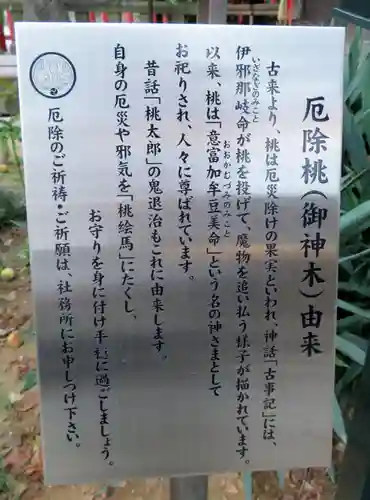 厄除桃(御神木)由来
古来より、桃は厄災除けの果実といわれ、神話「古事記」には、
いざなぎのみこと
伊邪那岐命が桃を投げて、魔物を追い払う様子が描かれています。
以来、桃は「意富加牟豆美命」という名の神さまとして
おおかむづみのみこと
お祀りされ、人々に尊ばれています。
昔話「桃太郎」の鬼退治もこれに由来します。
自身の厄災や邪気を「桃絵馬」にたくし、
お守りを身に付け平穏に過ごしましょう。
厄除のご祈祷・ご祈願は、社務所にお申しつけ下さい。